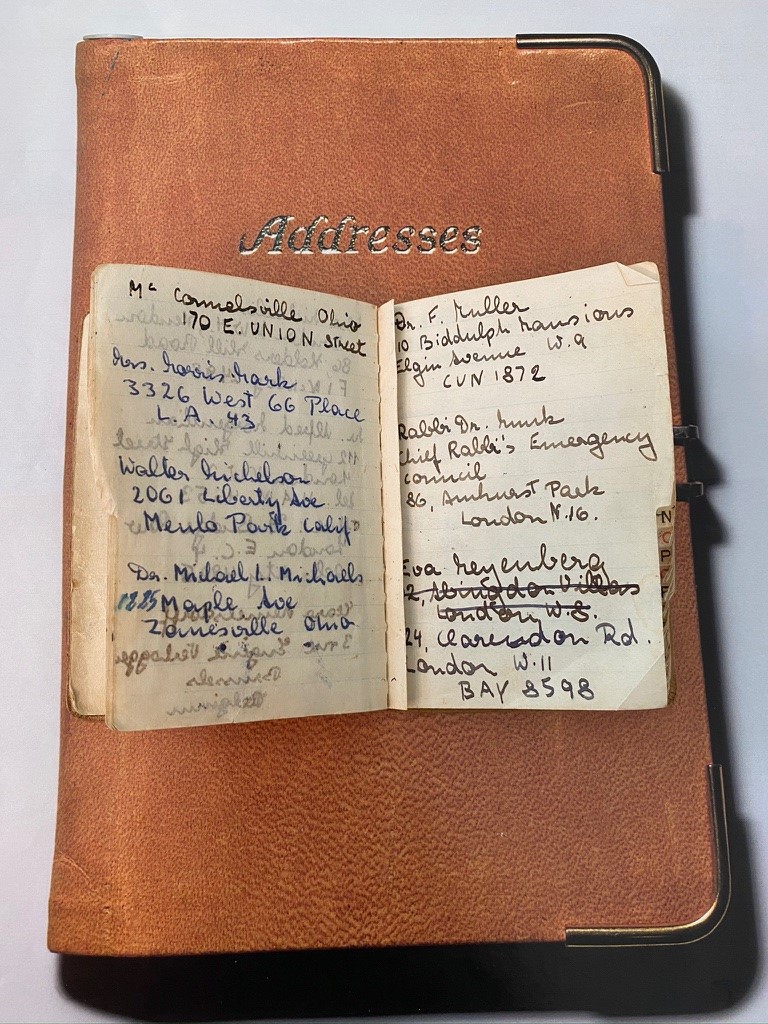 Addresses
Mc Connelsville Ohio
170 E. UNION Street
Mrs. Morris Mark
3326 West 66 Place
L.A. 43
Walter Michelson
2061 Liberty Ave
Menlo Park Calif
Dr. Michael L. Michaels
1825 Maple Ave
Zanesville Ohio
Dr. F. Muller
10 Biddulph Mansions
Elgin Avenue W.9
CUN 1872
Rabbi Dr. Munk
Chief Rabbi's Emergency
Council
86, Amhurst Park
London N.16.
Eva Meyenberg
2, Abingdon Villas
London W.8.
24, Clarendon Rd.
London W.11
BAY 8598
N
P